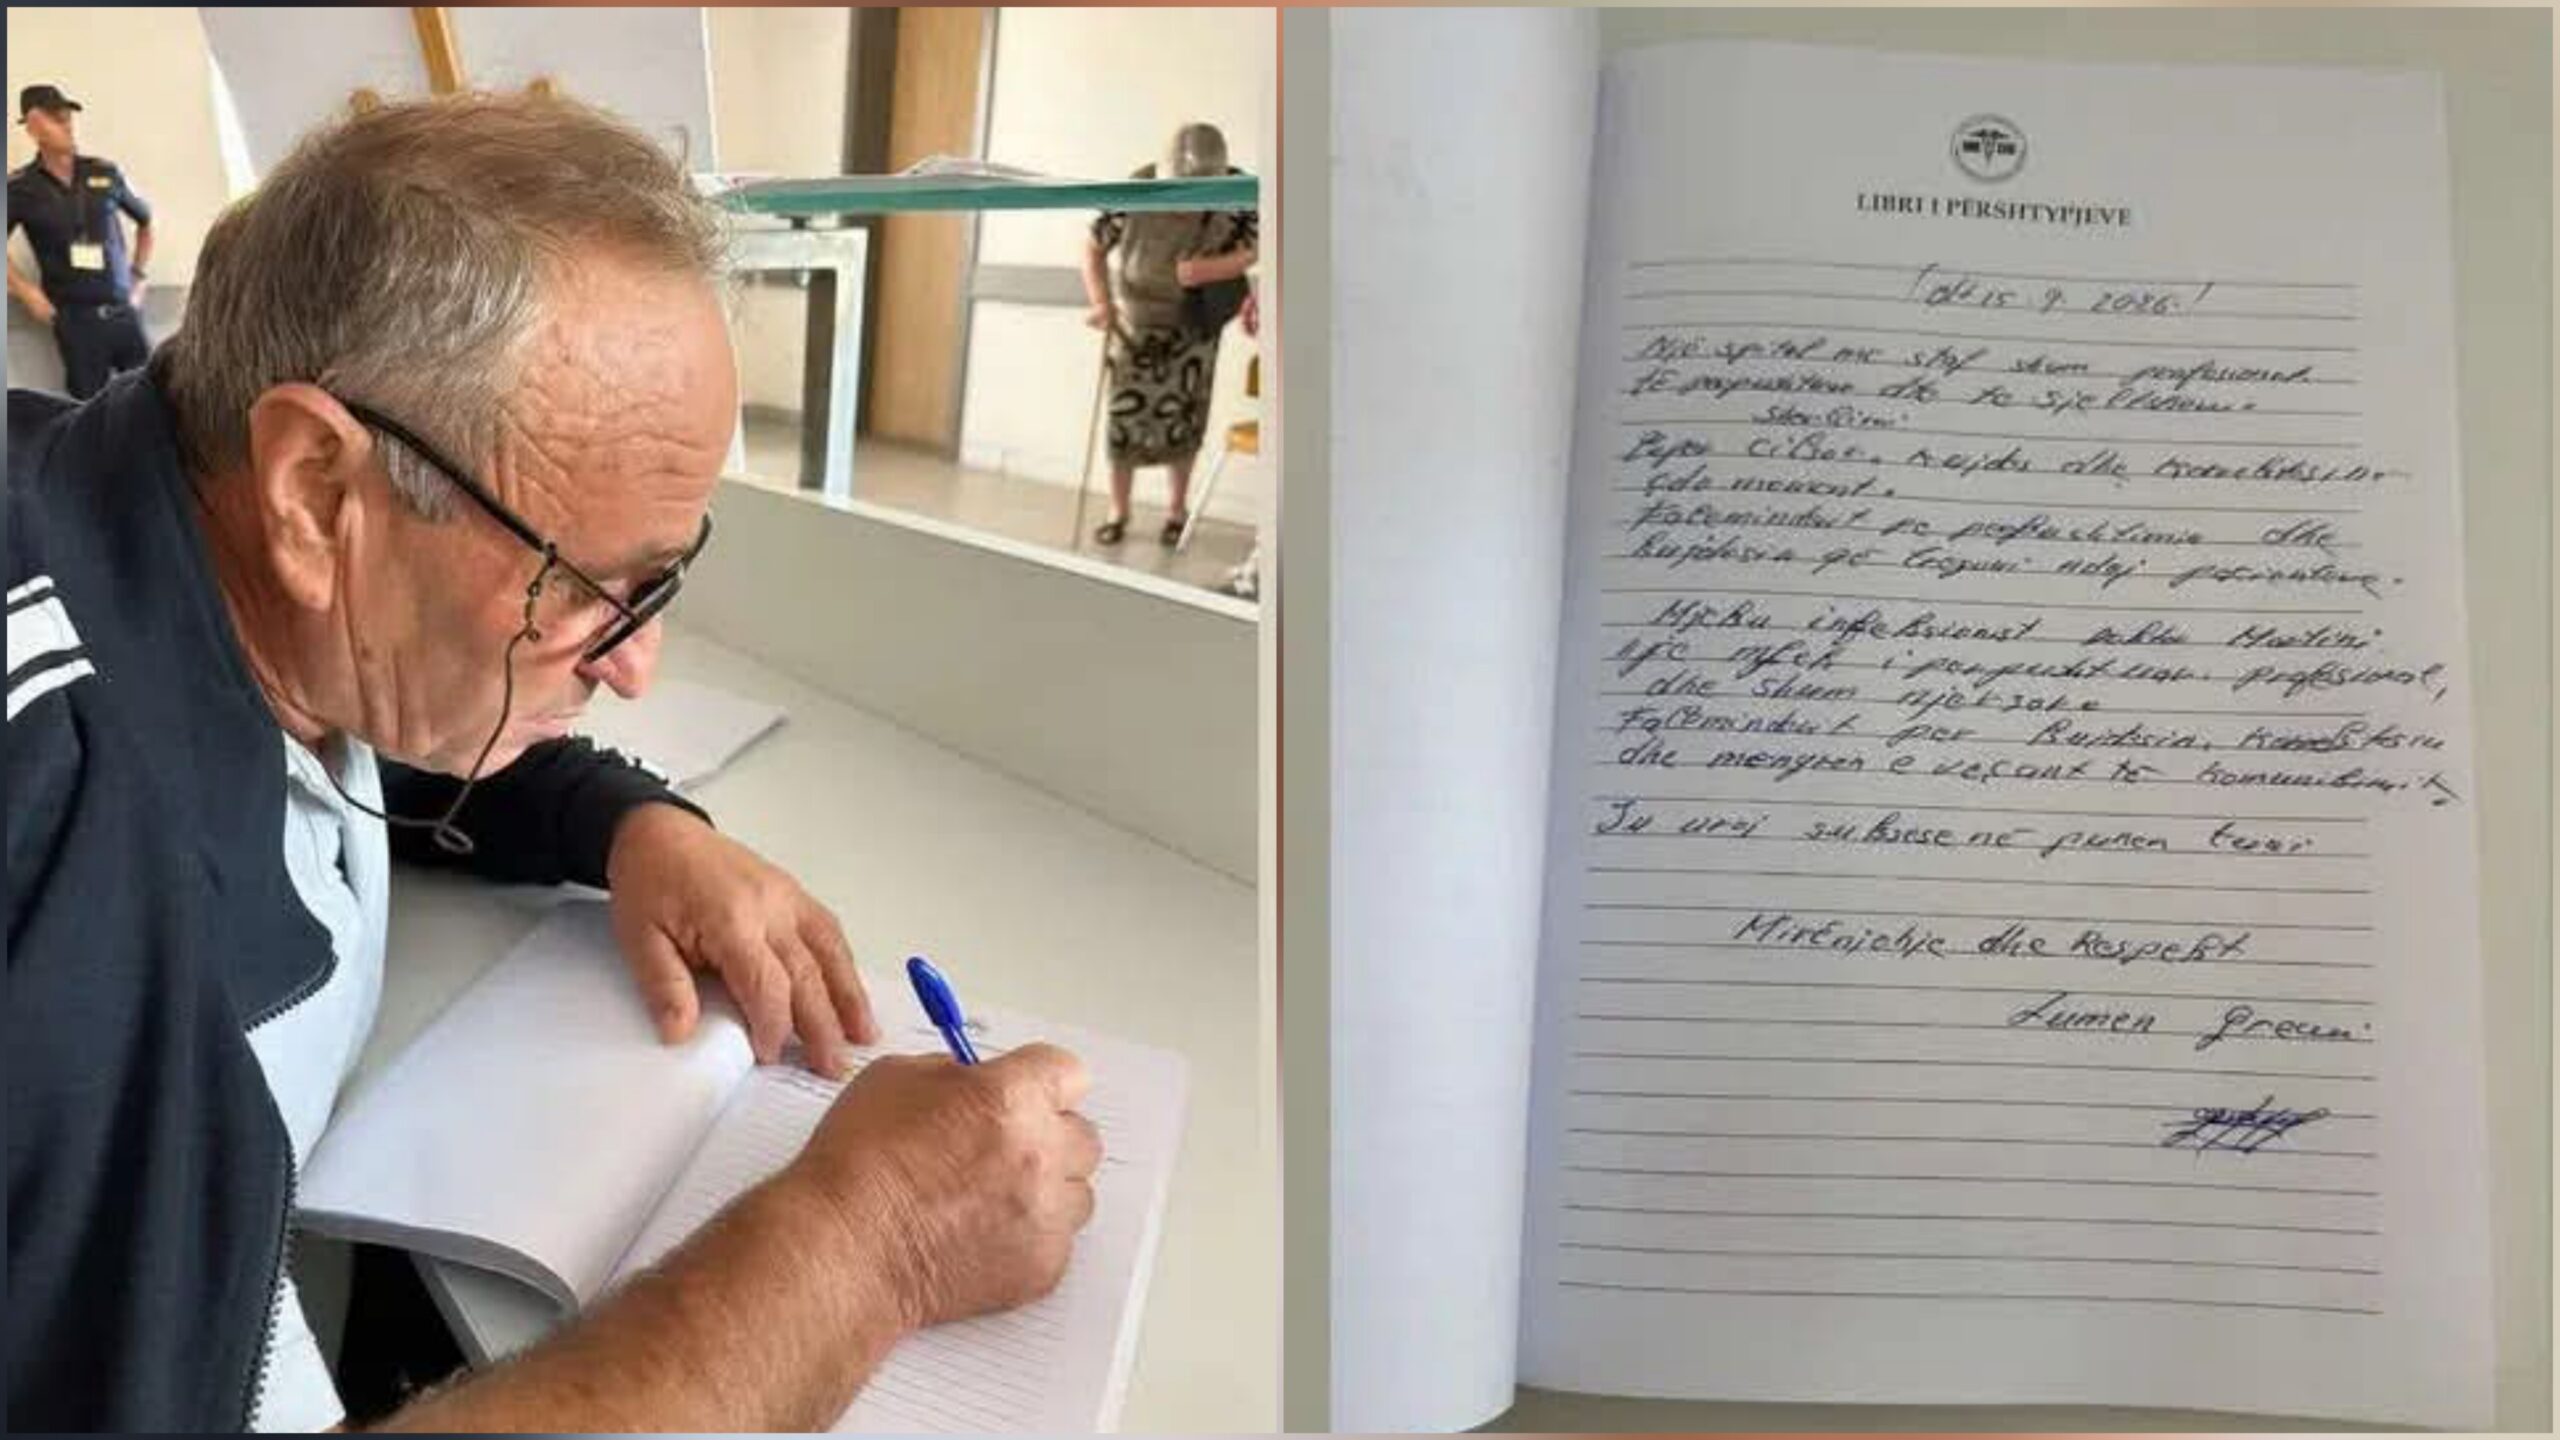 LIBRI I PËRSHTYPJEVE
dt 15.9.2026.
Një spital me staf shum profesional.
të perpushtum dhe te sjellshem.
Sherbimi
Super Cilsor, kujdes dhe korrektesi ne
çdo moment.
Faleminderit per perkushtimin dhe
kujdesin që tregoni ndaj pacienteve.
Mjeku infeksionist doktor Martini
një mjek i perpushtuar. profesional,
dhe shum njerzore
Faleminderit per kujdesin, korrektesin
dhe menyren e veçant të komunikimit,
Ju uroj suksese në punen tuaj
Mirënjohje dhe Respekt
Lumen Greuni